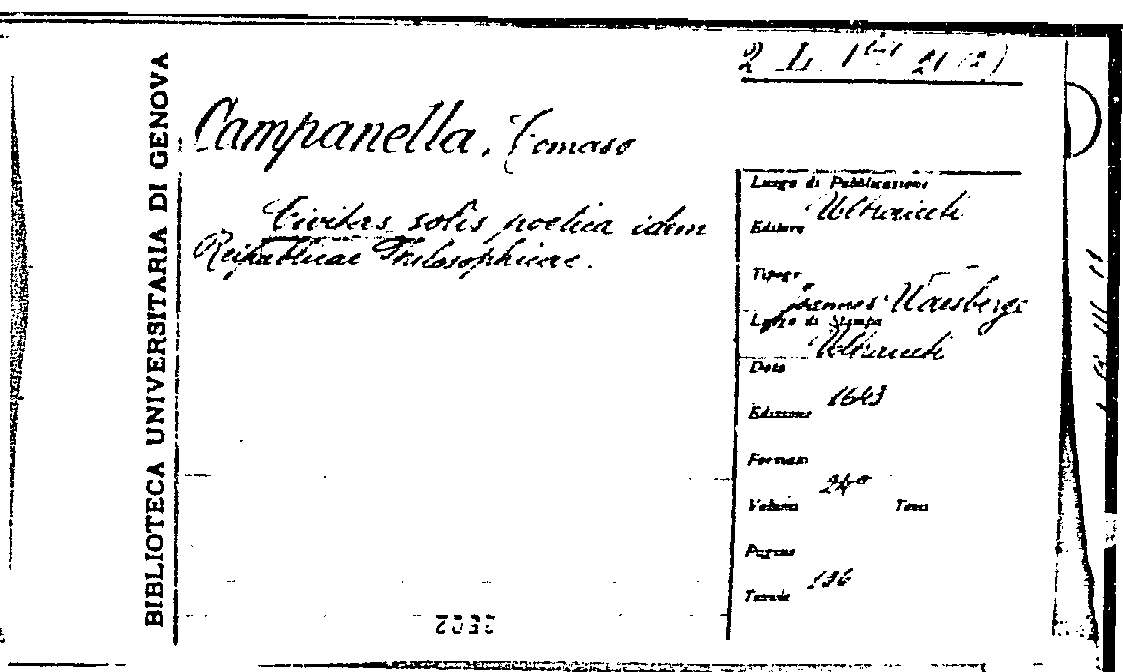 BIBLIOTECA UNIVERSITARIA DI GENOVA
2 L
Campanella, Tomaso
Civitas solis poetica idem
Reipublicae Philosophicae.
Luogo di Pubblicazione
Ultraiecti
Editore
Tipogr
Joannes Waesberge
Luogo di Stampa
Ultraiecti
Data
1643
Edizione
Formato
24°
Volume Tomo
Pagine
Tavole